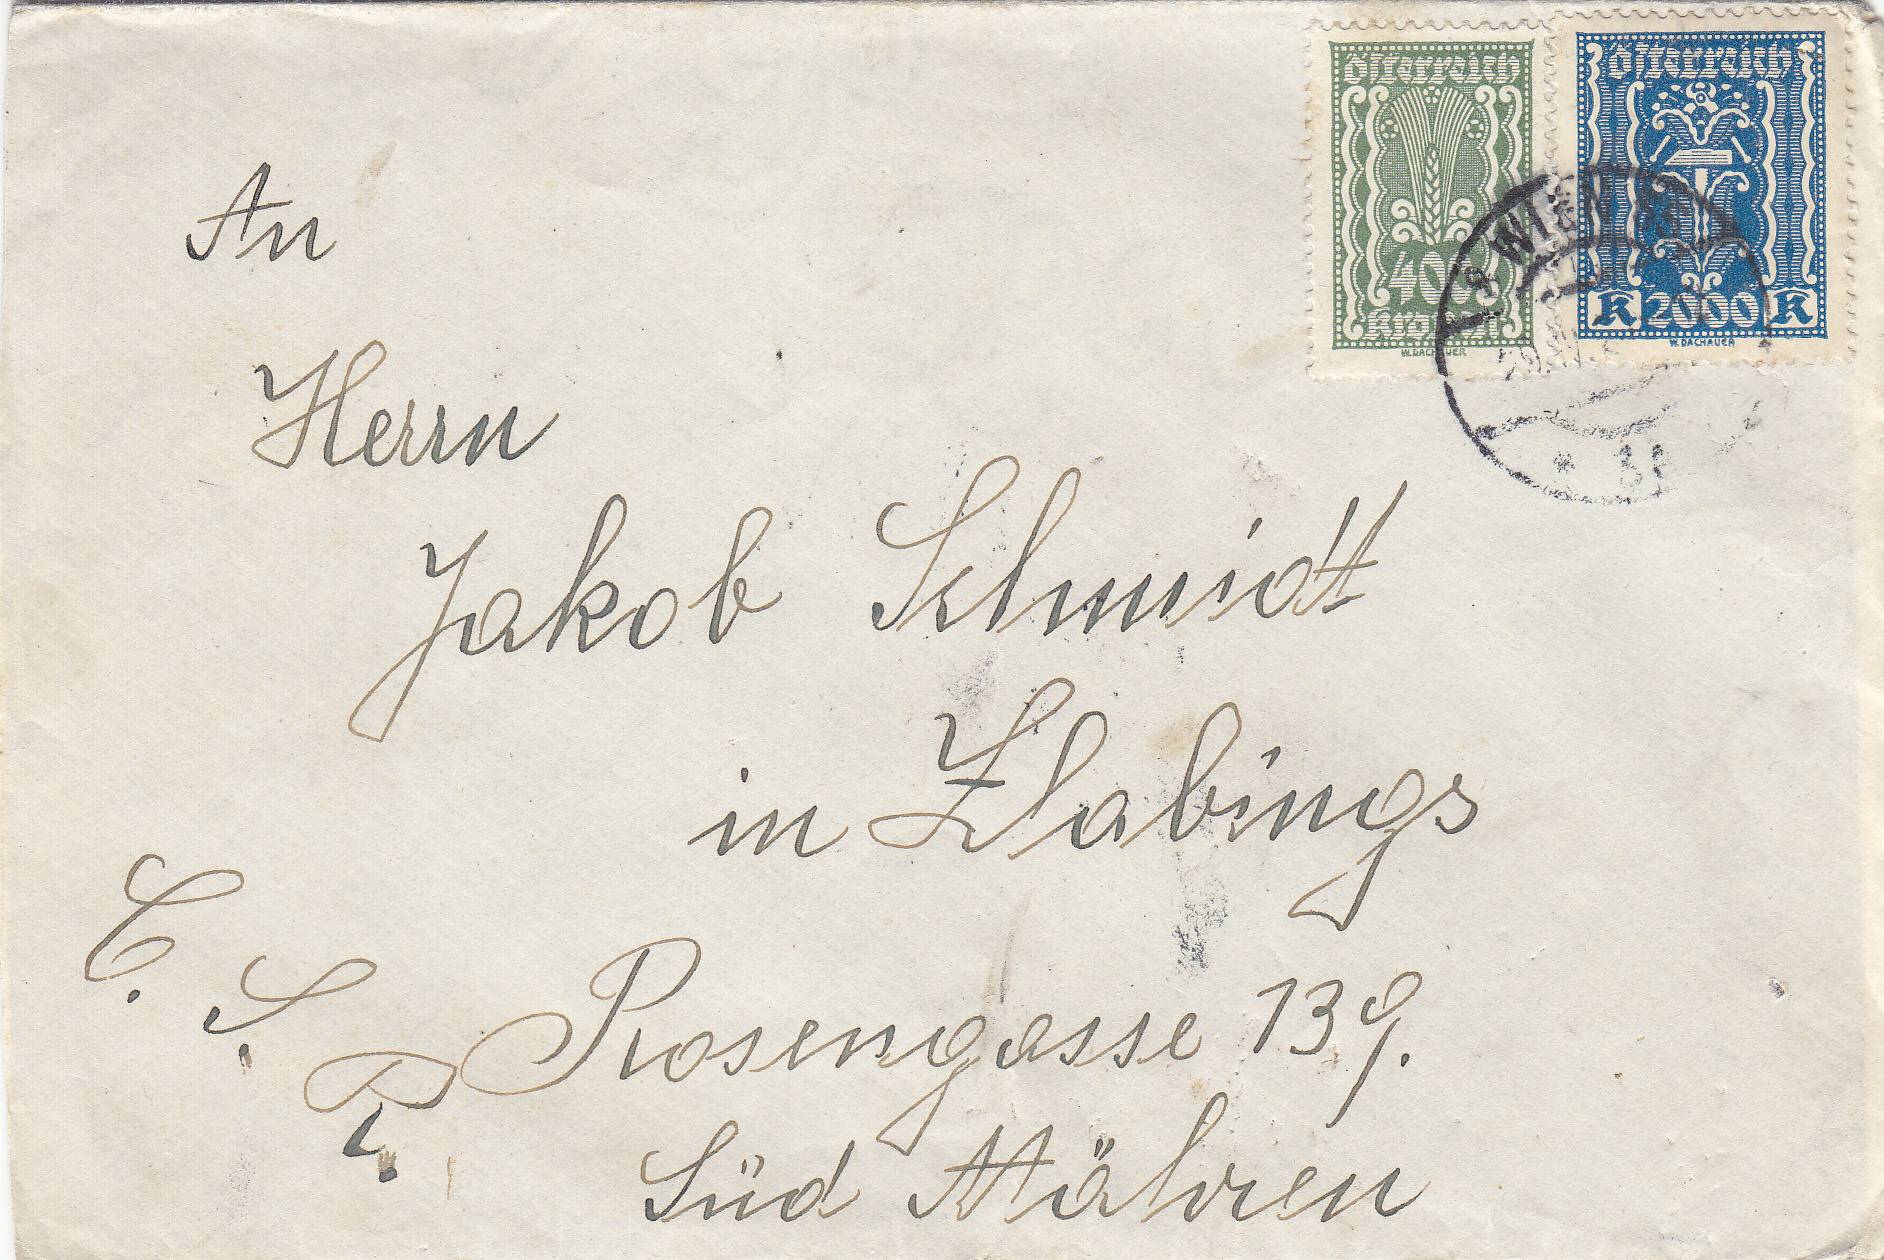 Österreich
400
Kronen
W.DACHAUER
Österreich
K 2000 K
W.DACHAUER
WIEN
An
Herrn
Jakob Schmidt
in Zlabings
Č. S. R.
Rosengasse 139.
Süd Mähren